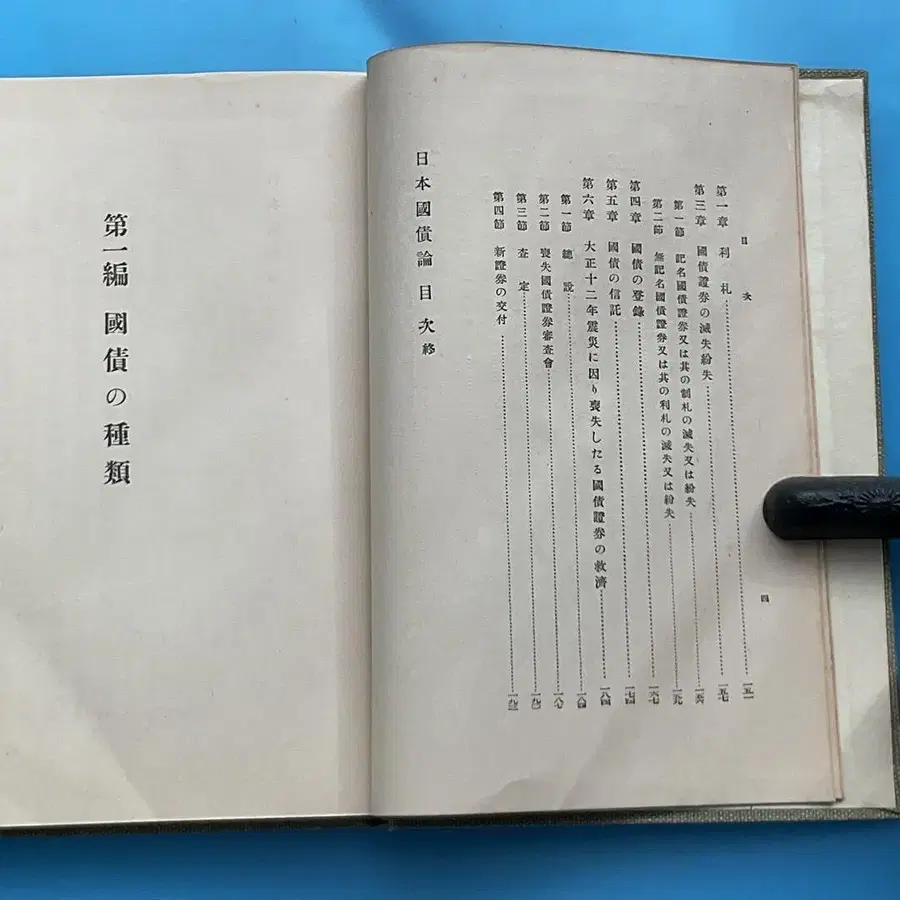 目次
四
第一章 利札 一五一
第三章 國債證券の滅失紛失 一五七
第一節 記名國債證券又は其の利札の滅失又は紛失
第二節 無記名國債證券又は其の利札の滅失又は紛失 一五九
第四章 國債の登錄 一六七
第五章 國債の信託 一七四
第六章 大正十二年震災に因り喪失したる國債證券の救濟 一八四
第一節 總說 一八四
第二節 喪失國債證券審查會
第三節 査定
第四節 新證券の交付
日本國債論目次終
第一編 國債の種類